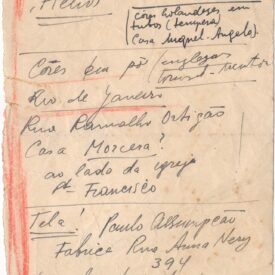 Helios
Côres holandeses em
tubos (tempera)
Casa Miguel Angelo)
Côres em pó (inglezas
Rio de Janeiro
Rua Ramalho Ortigão
Casa Morcera?
ao lado da igreja
Sº Francisco
Tela! Paulo Assumpcao
Fabrica Rua Anna Nery
394